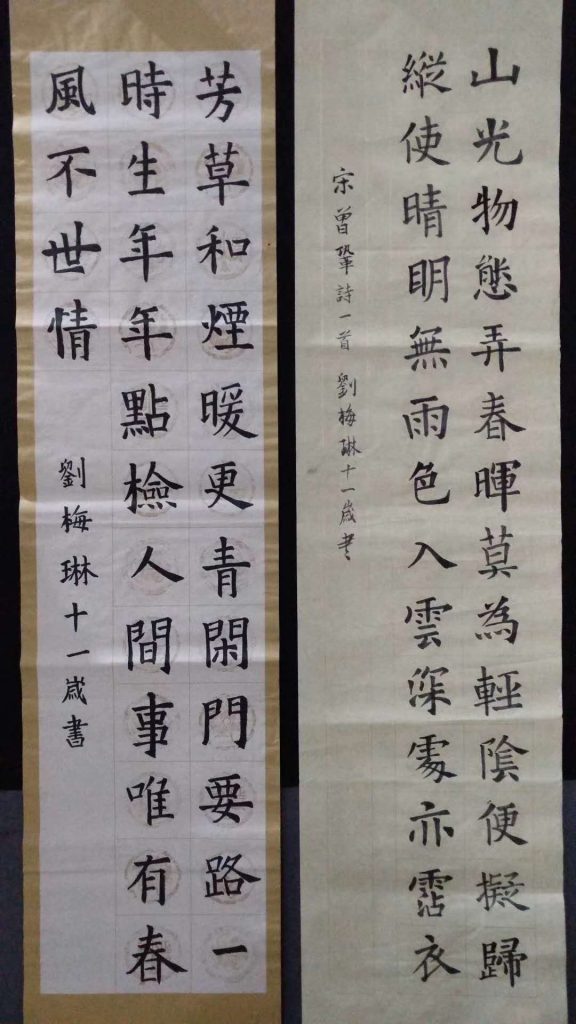 山光物態弄春暉莫為輕陰便擬歸
縱使晴明無雨色入雲深處亦霑衣
宋曾鞏詩一首 劉梅琳十一歲書
芳草和煙暖更青閑門要路一
時生年年點檢人間事唯有春
風不世情
劉梅琳十一歲書